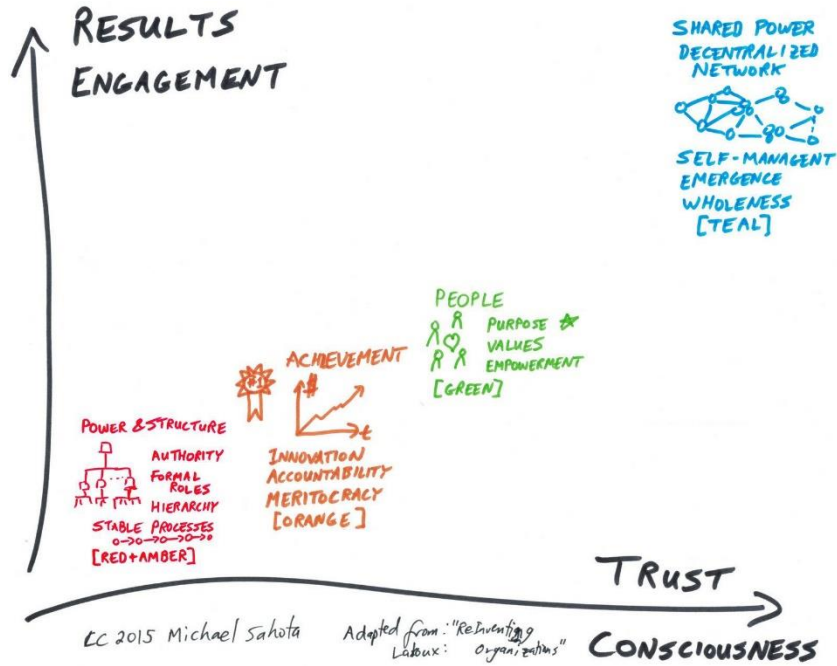 RESULTS
ENGAGEMENT
SHARED POWER
DECENTRALIZED
NETWORK
SELF-MANAGENT
EMERGENCE
WHOLENESS
[TEAL]
PEOPLE
PURPOSE
VALUES
EMPOWERMENT
[GREEN]
ACHIEVEMENT
#1
$
t
INNOVATION
ACCOUNTABILITY
MERITOCRACY
[ORANGE]
POWER & STRUCTURE
AUTHORITY
FORMAL
ROLES
HIERARCHY
STABLE PROCESSES
[RED+AMBER]
TRUST
CONSCIOUSNESS
CC 2015 Michael Sahota
Adapted from: "ReInventing
Laloux: Organizations"